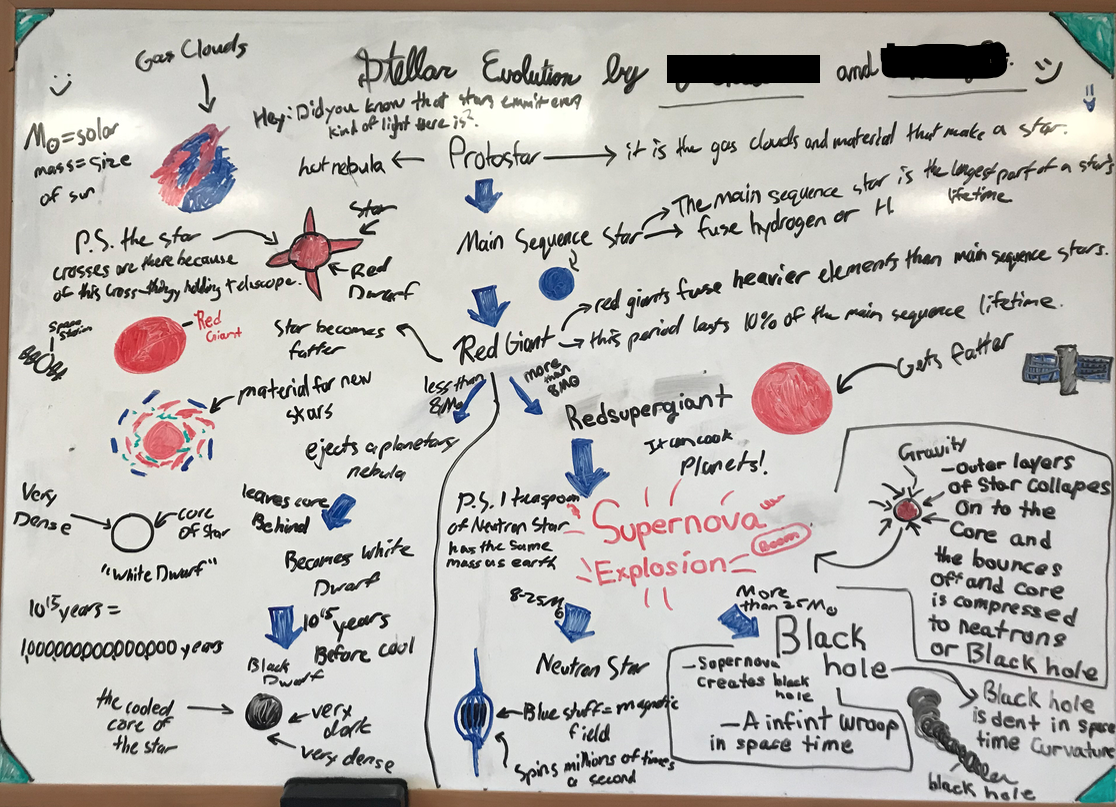 Gas Clouds
Stellar Evolution by
and
Hey! Did you know that stars emmit every
kind of light there is?
M⊙=solar
mass=size
of sun
hot nebula ← Protostar → it is the gas clouds and material that make a star.
Main Sequence Star
The main sequence star is the longest part of a star's
lifetime
fuse hydrogen or H.
P.S. the star
crosses are there because
of this cross-thingy holding telescope.
Star
Red
Dwarf
Space
Station
Red
Giant
Star becomes
fatter
Red Giant
red giants fuse heavier elements than main sequence stars.
this period lasts 10% of the main sequence lifetime.
less than
8M⊙
more
than
8M⊙
Redsupergiant
Gets fatter
It can cook
Planets!
material for new
stars
ejects a planetary
nebula
leaves core
Behind
Very
Dense
core
of Star
"White Dwarf"
Becomes White
Dwarf
10^15 years =
1,000,000,000,000,000 years
10^15 years
Before cool
Black
Dwarf
the cooled
core of
the star
very
dark
very dense
P.S. 1 teaspoon
of Neutron Star
has the same
mass as earth
Supernova
Explosion
Boom
Gravity
-Outer layers
of Star collapses
On to the
Core and
the bounces
off and core
is compressed
to neatrons
or Black hole
8-25M⊙
More
than 25M⊙
Neutron Star
Blue stuff = magnetic
field
Spins millions of times
a second
Black
hole
-Supernova
creates black
hole
-A infint wroop
in space time
Black hole
is dent in space
time curvature
black hole